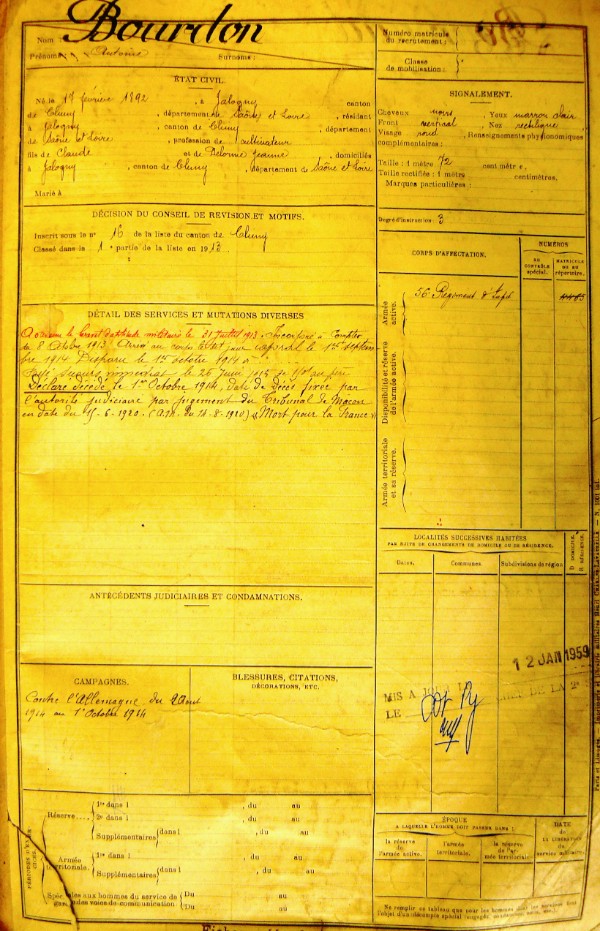 Nom : Bourdon
Prénoms : Antoine Surnoms :
ÉTAT CIVIL.
Né le 17 février 1892, à Jalogny canton
de Cluny, département de Saône et Loire, résidant
à Jalogny, canton de Cluny, département
de Saône et Loire, profession de cultivateur
fils de Claude et de Delorme Jeanne, domiciliés
à Jalogny, canton de Cluny, département de Saône et Loire
Marié à
DÉCISION DU CONSEIL DE REVISION ET MOTIFS.
Inscrit sous le n° 16 de la liste du canton de Cluny
Classé dans la 1e partie de la liste en 1913
DÉTAIL DES SERVICES ET MUTATIONS DIVERSES
A obtenu le brevet d'aptitude militaire le 31 Juillet 1913. Incorporé à compter
du 8 Octobre 1913. Arrivé au corps le dit jour, caporal le 1er septem
bre 1914. Disparu le 1er octobre 1914.
le 26 Juin 1915
Déclaré décédé le 1er Octobre 1914, date de décès fixée par
l'autorité judiciaire par jugement du Tribunal de Macon
en date du 15-6-1920 "Mort pour la France"
ANTÉCÉDENTS JUDICIAIRES ET CONDAMNATIONS.
CAMPAGNES.
Contre l'Allemagne du 2 Août
1914 au 1er Octobre 1914
BLESSURES, CITATIONS,
DÉCORATIONS, ETC.
Réserve
1re dans l , du au
2e dans l , du au
Supplémentaires dans l , du au
Armée
territoriale.
1re dans l , du au
Supplémentaires dans l , du au
Spéciales aux hommes du service de
garde des voies de communication.
Du au
Du au
Numéro matricule
du recrutement :
Classe
de mobilisation :
SIGNALEMENT.
Cheveux noirs, Yeux marron clair
Front vertical, Nez rectiligne
Visage rond, Renseignements physionomiques
complémentaires :
Taille : 1 mètre 72 centimètres.
Taille rectifiée : 1 mètre centimètres.
Marques particulières :
Degré d'instruction : 3
CORPS D'AFFECTATION.
NUMÉROS
AU
CONTRÔLE
spécial.
MATRICULE
OU AU
répertoire.
Armée
active.
56e Régiment d'Infie
Disponibilité et réserve
de l'armée active.
Armée territoriale
et sa réserve.
LOCALITÉS SUCCESSIVES HABITÉES
PAR SUITE DE CHANGEMENTS DE DOMICILE OU DE RÉSIDENCE.
D DOMICILE.
R RÉSIDENCE.
Dates.
Communes
Subdivisions de région
12 JAN 1959
MIS A JOUR
LE
ÉPOQUE
A LAQUELLE L'HOMME DOIT PASSER DANS :
la réserve
de l'armée active.
l'armée
territoriale.
la réserve
de l'armée territoriale.
DATE
de
LA LIBÉRATION
du
service militaire.